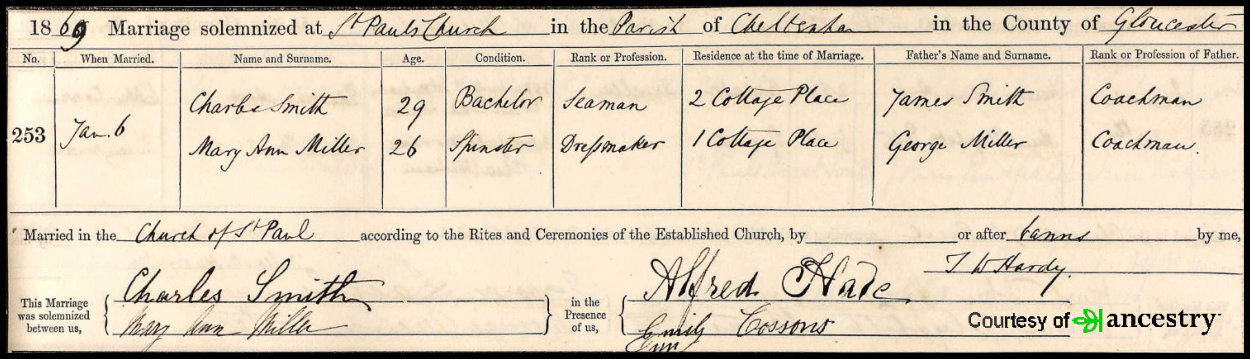 1869 Marriage solemnized at St Pauls Church in the Parish of Cheltenham in the County of Gloucester
No. When Married. Name and Surname. Age. Condition. Rank or Profession. Residence at the time of Marriage. Father's Name and Surname. Rank or Profession of Father.
253 Jan. 6
Charles Smith 29 Bachelor Seaman 2 Cottage Place James Smith Coachman
Mary Ann Miller 26 Spinster Dressmaker 1 Cottage Place George Miller Coachman
Married in the Church of St Paul according to the Rites and Ceremonies of the Established Church, by or after banns by me,
T W Hardy.
This Marriage was solemnized between us,
Charles Smith
Mary Ann Miller
in the Presence of us,
Alfred
Emily Cossons
Courtesy of ancestry